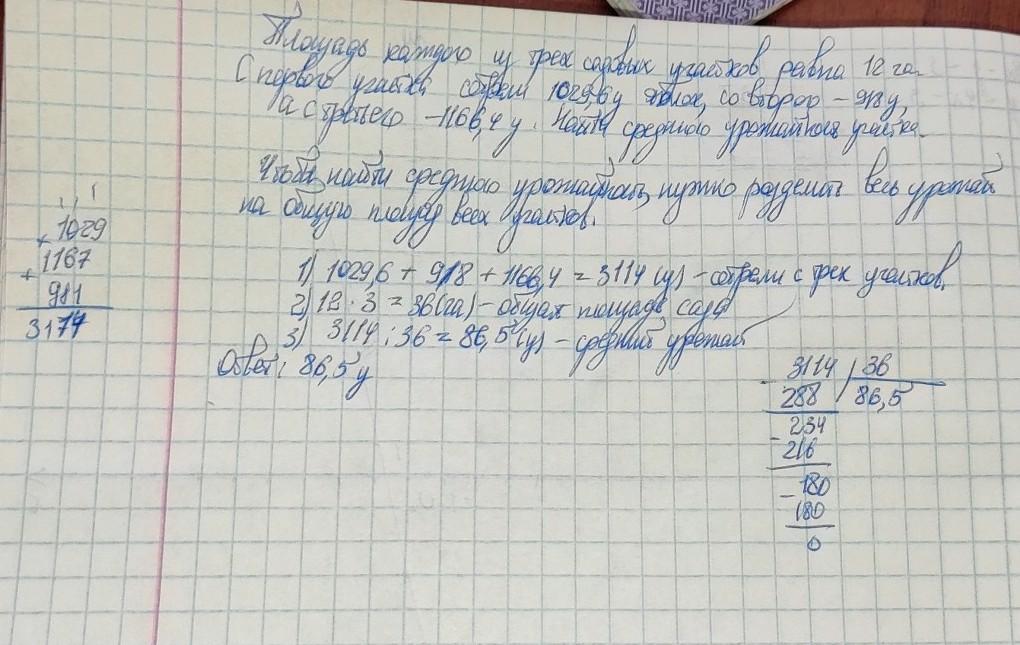 Площадь каждого из трех садовых участков равна 12 га.
С первого участка собрали 1029,6 ц яблок, со второго – 918 ц,
а с третьего – 1166,4 ц. Найти среднюю урожайность участка.
Чтобы найти среднюю урожайность, нужно разделить весь урожай
на общую площадь всех участков.
1) 1029,6 + 918 + 1166,4 = 3114 (ц) – собрали с трех участков.
2) 12 · 3 = 36 (га) – общая площадь сада
3) 3114 : 36 = 86,5 (ц) – средний урожай
Ответ: 86,5 ц
1029
+
1167
+
981
3177
3114 36
- 288 86,5
234
- 216
- 180
180
0